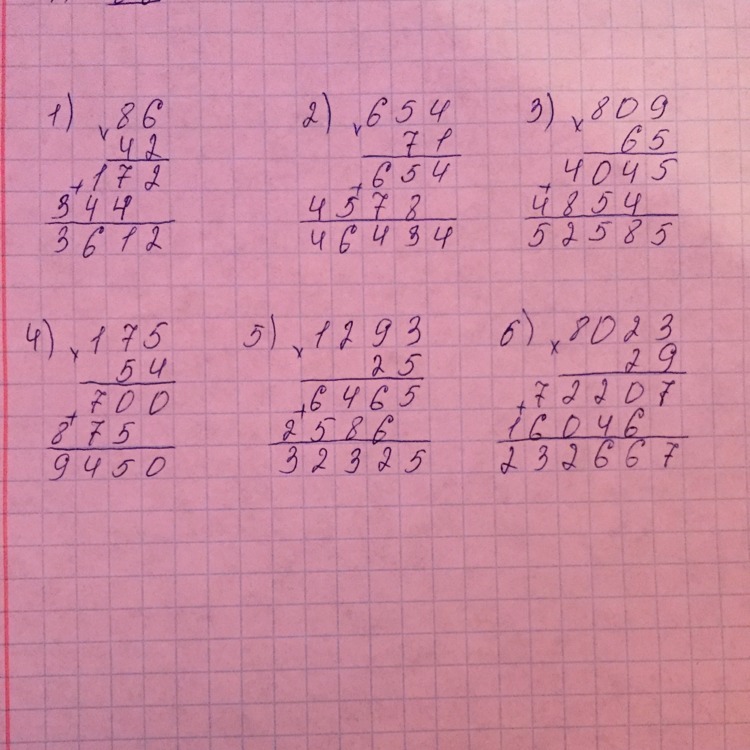 1) × 86
42
+ 172
344
3612
2) × 654
71
+ 654
4578
46434
3) × 809
65
+ 4045
4854
52585
4) × 175
54
+ 700
875
9450
5) × 1293
25
+ 6465
2586
32325
6) × 8023
29
+ 72207
16046
232667